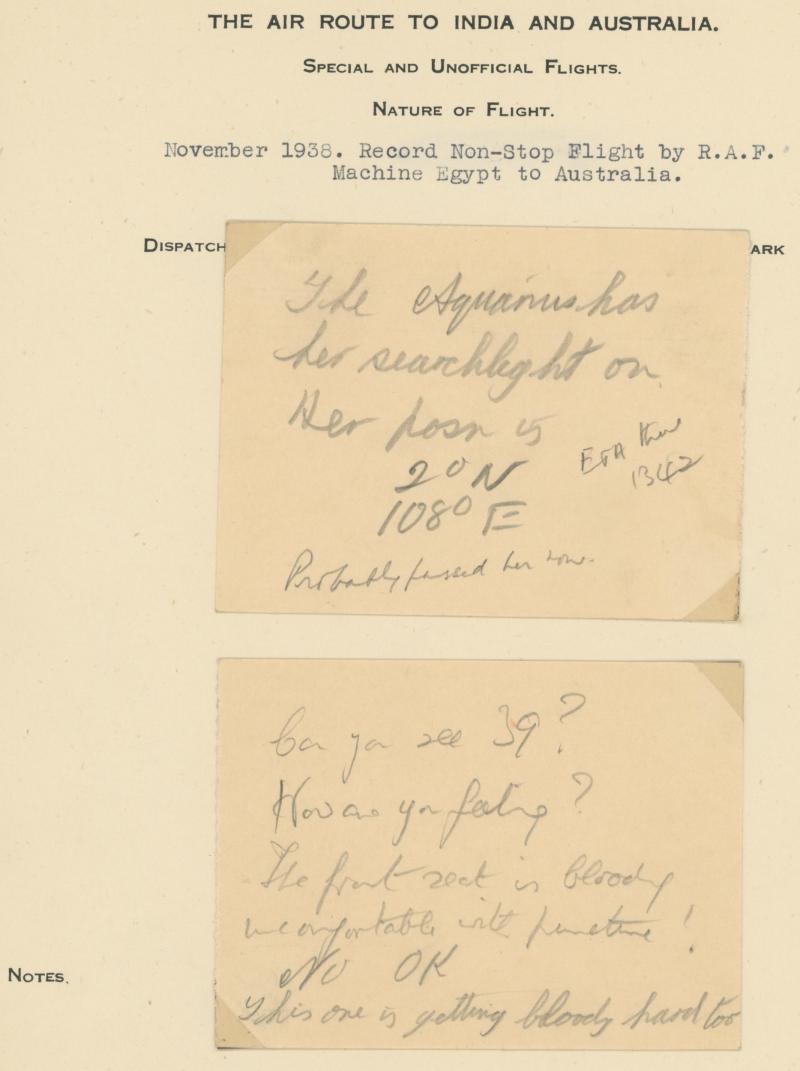 THE AIR ROUTE TO INDIA AND AUSTRALIA.
SPECIAL AND UNOFFICIAL FLIGHTS.
NATURE OF FLIGHT.
November 1938. Record Non-Stop Flight by R.A.F.
Machine Egypt to Australia.
DISPATCH
ARK
The Aquarius has
her searchlight on
Her posn is
2° N
108° E
ETA there
1342
Probably passed her now.
Can you see 39?
How are you feeling?
The front seat is bloody
uncomfortable with puncture!
No OK
This one is getting bloody hard too
NOTES.